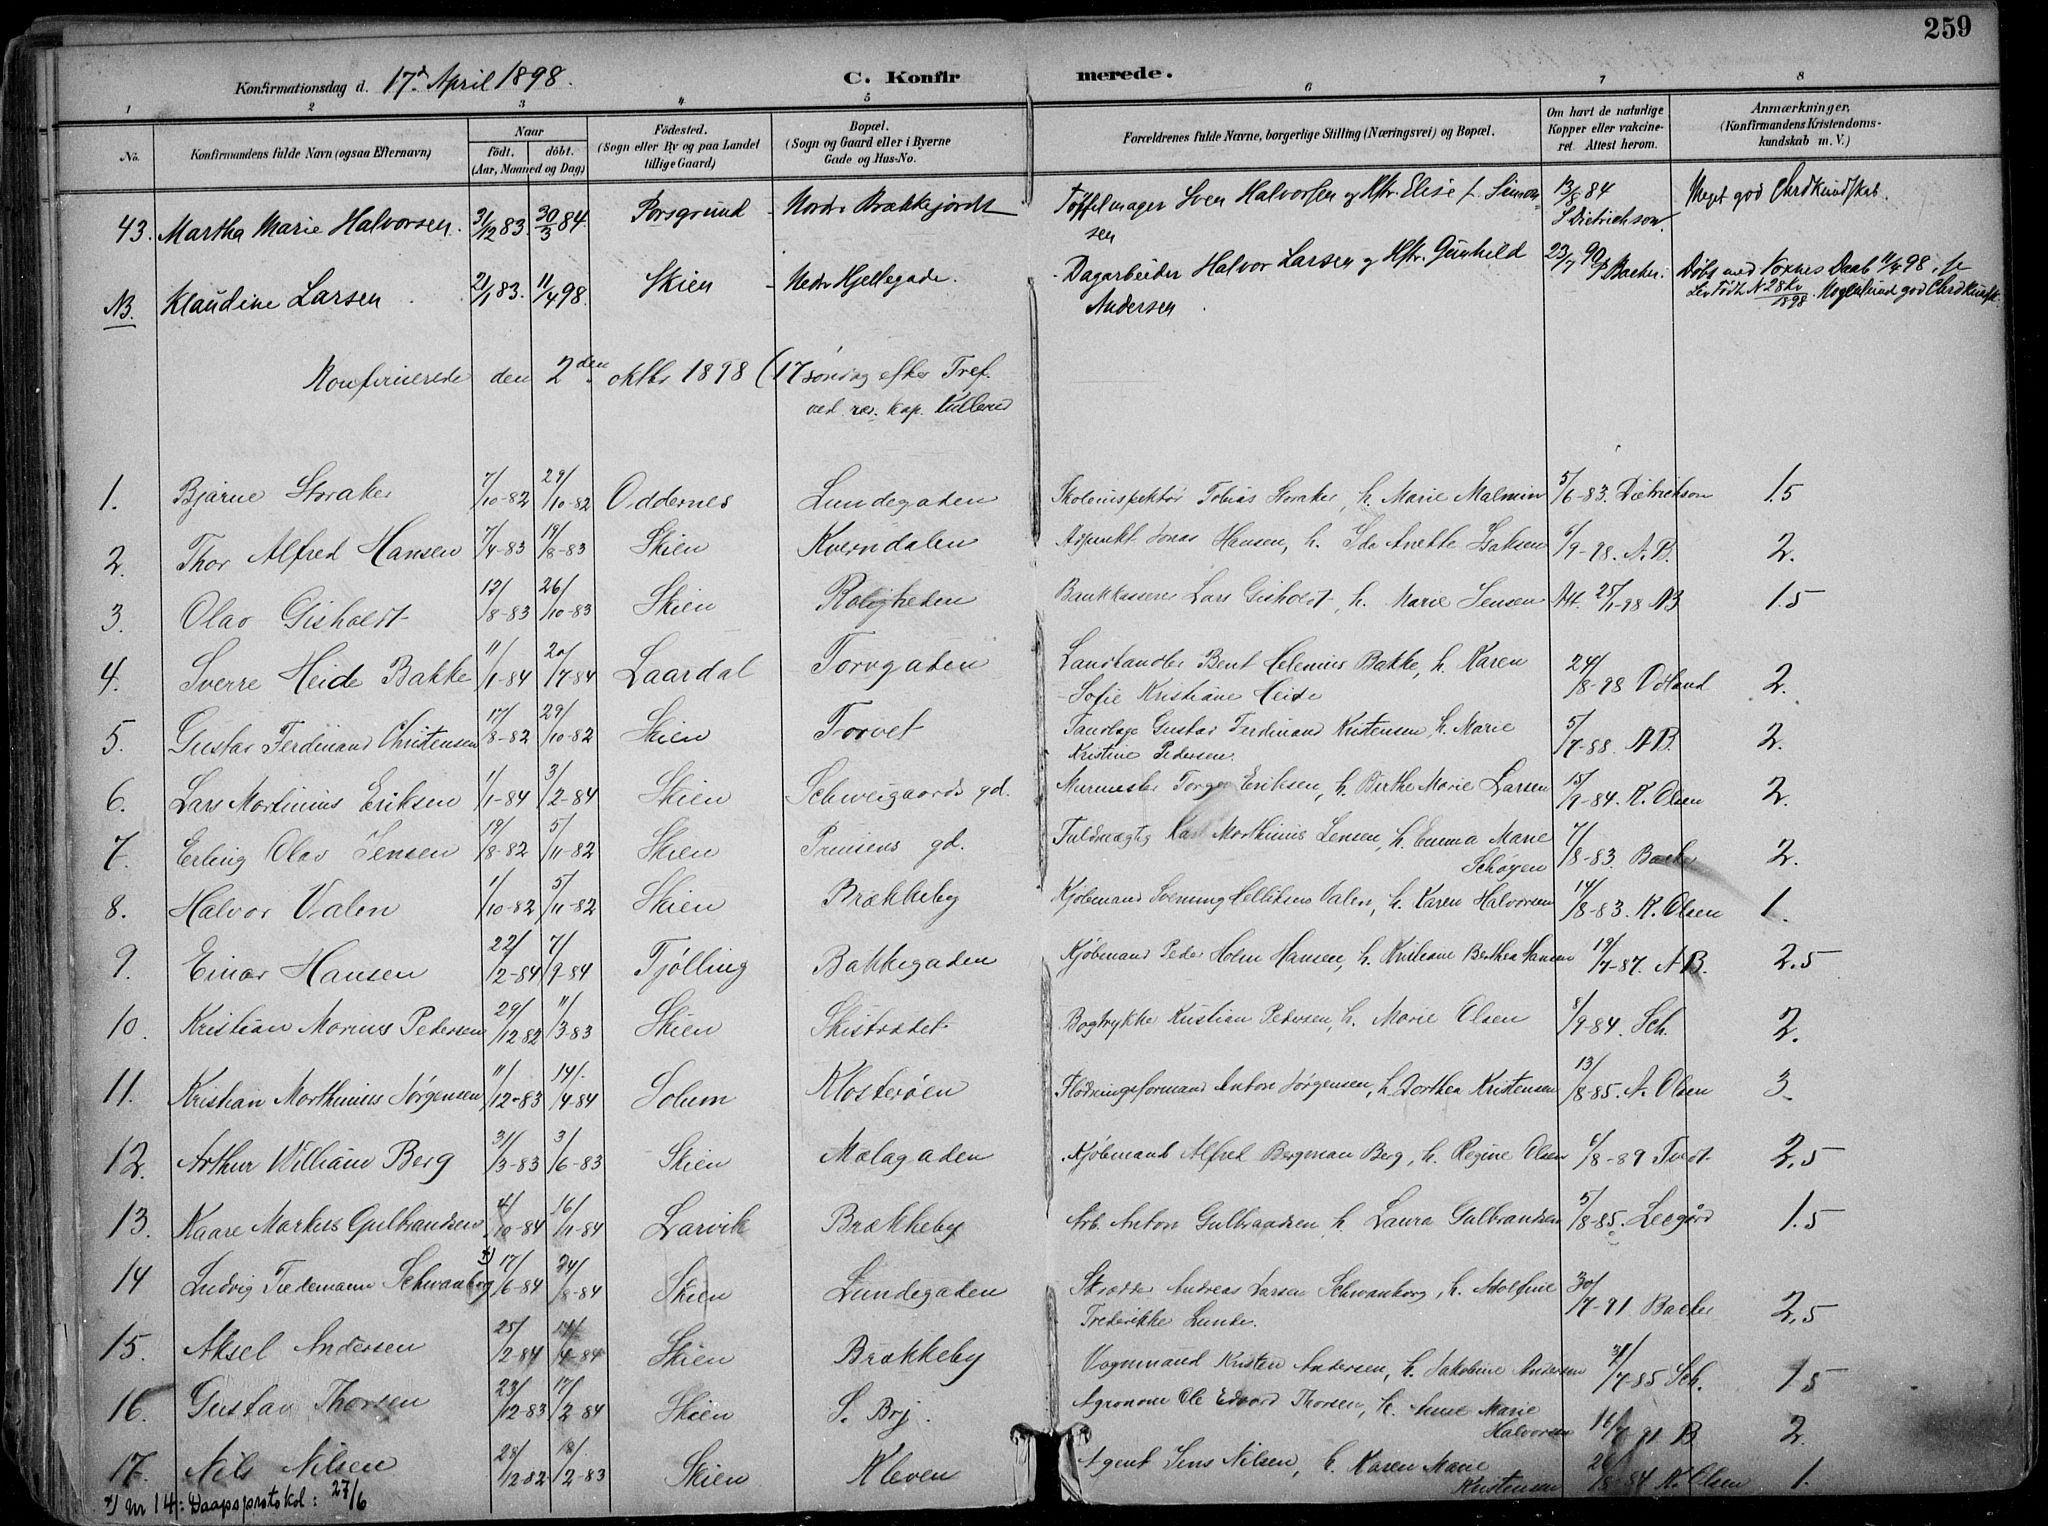 259
Konfirmationsdag d. 17d April 1898.
C. Konfirmerede.
1 2 3 4 5 6 7 8
No.
Konfirmandens fulde Navn (ogsaa Efternavn)
Naar
født. døbt.
(Aar, Maaned og Dag)
Fødested.
(Sogn eller By og paa Landet
tillige Gaard)
Bopæl.
(Sogn og Gaard eller i Byerne
Gade og Hus-No.
Forældrenes fulde Navne, borgerlige Stilling (Næringsvei) og Bopæl.
Om havt de naturlige
Kopper eller vakcine-
ret. Attest herom.
Anmærkninger,
(Konfirmandens Kristendoms-
kundskab m. V.)
43. Martha Marie Halvorsen. 31/12 83. 30/3 84. Porsgrund Nordr Brækkejordet Tøffelmager Sven Halvorsen og Hstr. Elise f. Simon- 13/8 84 Meget god Chrdkundskab.
sen S Dietrichson.
NB. Klaudine Larsen 21/1 83. 11/4 98. Skien Nedr Hjellegade. Dagarbeider Halvor Larsen og Hstr. Gunhild 23/7 90 Backer. Døbt med Voxnes Daab 11/4 98, se
Andersen. 1898.
Konfirmerede den 2den oktbr 1898 (17 søndag efter Tref.
ved res. kap. Kullerud
1. Bjarne Storaker 7/10-82 29/10-82 Oddernes Lundegaden Skoleinspektør Tobias Storaker, h. Marie Malmin 5/6-83. Dietrichson 1.5
2. Thor Alfred Hansen 7/4-83 19/8-83 Skien Kverndalen Jonas Hansen, h. Ida Anette Isaksen 6/9-98. A.B. 2.
3. Olav Gisholdt 12/8-83 26/10-83 Skien Roligheden Bankkasserer Lars Gisholdt, h. Marie Jensen Att. 25/1-98 AB 1.5
4. Sverre Heide Bakke 11/1-84 20/7-84 Laardal Torvgaden Landhandler Bent Helenius Bakke, h. Karen 24/8-98 Odland 2.
Sofie Kristiane Heide
5. Gustav Ferdinand Christensen 17/8-82 29/10-82 Skien Torvet Tandlæge Gustav Ferdinand Kristensen, h. Marie 5/7-88. A.B. 2.
Kristine Pedersen.
6. Lars Martinius Eriksen 1/1-84 3/2-84 Skien Schweigaards gd. Murmester Torger Eriksen, h. Berthe Marie Larsen 15/9-84. K. Olsen 2.
7. Erling Olav Jensen 19/8-82 5/11-82 Skien Prinsens gd. Fuldmægtig Karl Morthinius Jensen, h. Emma Marie 7/8-83. Backer 2.
Schøyen
8. Halvor Valen 1/10-82 5/11-82 Skien Brækkeby Kjøbmand Svenning Helliksen Valen, h. Karen Halvorsen 14/8-83. K. Olsen 1.
9. Einar Hansen 22/2-84 7/9-84 Tjølling Bakkegaden Kjøbmand Peder Holm Hansen, h. Kristiane Berthea Hansen 19/7-87. A.B. 2.5
10. Kristian Marius Pedersen 29/12 82 11/3-83 Skien Skistredet Bogtrykker Kristian Pedersen, h. Marie Olsen 8/9-84. Sch. 2.
11. Kristian Morthinius Jørgensen 11/12-83 14/4-84 Solum Klosterøen Flødningsformand Anton Jørgensen, h. Dorthea Kristensen 13/8-85. A. Olsen 3.
12. Arthur William Berg 31/3-83 3/6-83 Skien Mælagaden Kjøbmand Alfred Bergman Berg, h. Regine Olsen 6/8-89 Tvedt 2.5
13. Kaare Markus Gulbrandsen 4/10-84 16/11-84 Larvik Brækkeby Arb. Anton Gulbrandsen h. Laura Gulbrandsen 5/8-85. Leegård 1.5
14 Ludvig Tiedemann Schwanborg x) 17/6-84 24/8-84 Skien Lundegaden Skrædder Andreas Larsen Schwanborg, h. Adolfine 30/7-91 Backer 2.5
Frederikke Lunde.
15. Aksel Andersen 25/2-84 14/4-84 Skien Brækkeby Vognmand Kristen Andersen, h. Jakobine Andersen 31/7-85 Sch. 1.5
16. Gustav Thorsen 23/12-83 17/2-84 Skien S. Brj. Agronom Ole Edvard Thorsen, h. Anne Marie
Halvorsen 91 B 2.
17. Nils Nilsen 28/12-82 18/2-83 Skien Kleven Agent Jens Nilsen, h. Karen Marie
Kristensen 26/8-84 K. Olsen 1.
x) Nr 14: Daapsprotokol: 27/6